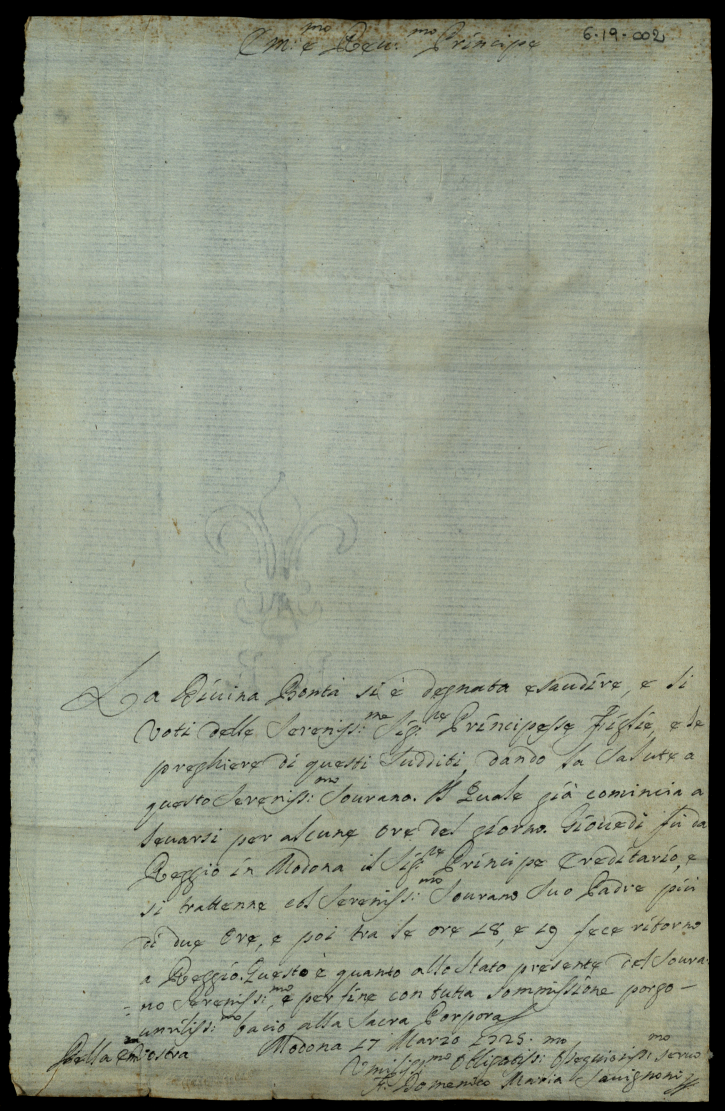 Em:mo e Rev:mo Principe 6.19.002
La Divina Bontà si è degnata esaudire, e li
voti delle Sereniss:me Sig:re Principesse Figlie, e le
preghiere di questi Sudditi, dando la salute a
questo Sereniss:mo Sovrano. Il Quale già comincia a
levarsi per alcune ore del giorno. Giovedì fù da
Reggio in Modona il Sig:re Principe Ereditario, e
si trattenne col Sereniss:mo Sovrano suo Padre più
di due Ore, e poi tra le ore 18, e 19 fece ritorno
a Reggio. Questo è quanto allo stato presente del Sovra
=no Sereniss:mo, e per fine con tutta sommissione porgo
umiliss:mo bacio alla Sacra Porpora
Della Em:za Vostra Modona 17 Marzo 1725.
Umiliss:mo Obligatiss:mo Ossequiosiss:mo servo
F. Domenico Maria Savignoni